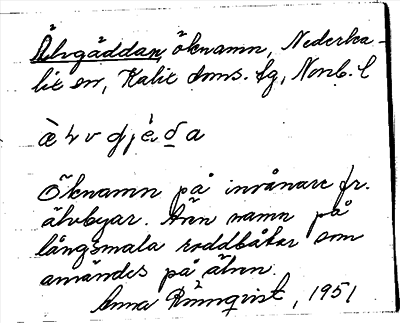 Älvgäddan, öknamn, Nederka-
lix sn, Kalix tms. lg, Norrb. l
öknamn på invånare fr.
älvbyar. Även namn på
långsmala roddbåtar som
användes på älven.
Anna Rönnqvist, 1951